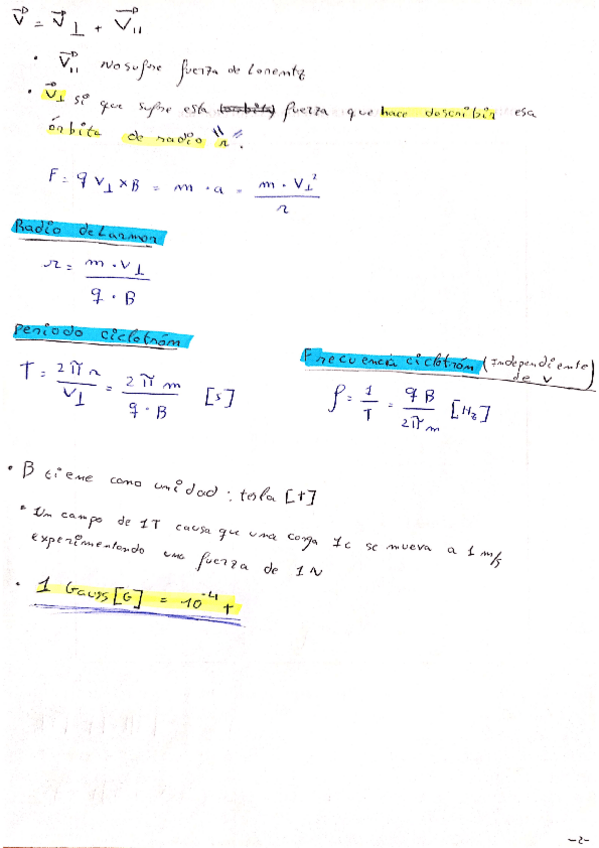 V⃗ = V⃗⊥ + V⃗||
• V⃗|| No sufre fuerza de Lorentz
• V⃗⊥ si que sufre esta (orbita) fuerza que hace describir esa
órbita de radio "r".
F = q V⊥ × B = m · a = m · V⊥² / r
Radio de Larmor
r = m · V⊥ / q · B
periodo ciclotrón
Frecuencia ciclotrón (Independiente
de v)
T = 2πr / V⊥ = 2πm / q · B [s]
f = 1 / T = q B / 2πm [Hz]
• B tiene como unidad: tesla [T]
* Un campo de 1T causa que una carga 1c se mueva a 1 m/s
experimentando una fuerza de 1N
• 1 Gauss [G] = 10⁻⁴ T
-2-